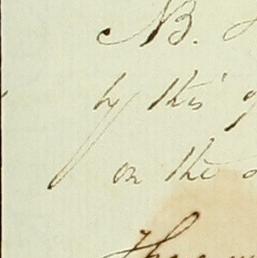 NB.
by this
on the
The